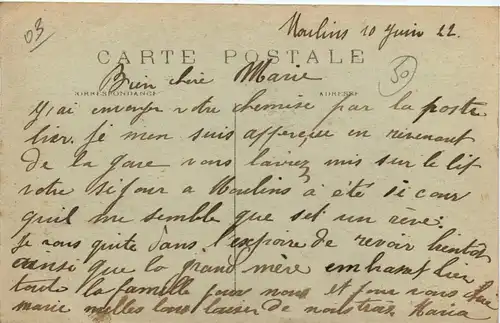 03
Moulins 10 Juin 22.
CARTE POSTALE
50
Bien chère Marie
CORRESPONDANCE ADRESSE
j'ai envoyer votre chemise par la poste
hier. je men suis aperçue en revenant
de la gare vous laviez mis sur le lit
votre séjour a Moulins à été si cour
quil me semble que set un reve.
Je vous quite dans l'expoire de revoir bientot
ainsi que la grand mère embrasser bien
toute la famille pour nous et pour vous
marie milles bons baiser de nous tras Maria